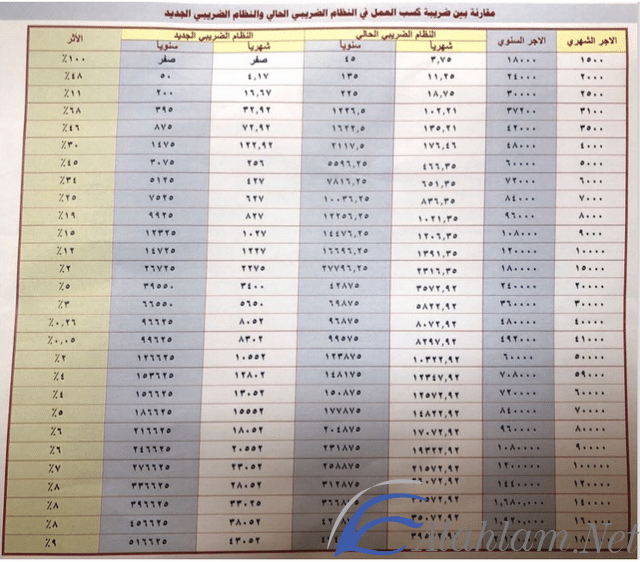 مقارنة بين ضريبة كسب العمل في النظام الضريبي الحالي والنظام الضريبي الجديد
الاجر الشهري الاجر السنوي النظام الضريبي الحالي النظام الضريبي الجديد الأثر
شهرياً سنوياً شهرياً سنوياً
١٥٠٠ ١٨٠٠٠ ٣,٧٥ ٤٥ صفر صفر ٪١٠٠
٢٠٠٠ ٢٤٠٠٠ ١١,٢٥ ١٣٥ ٤,١٧ ٥٠ ٪٤٨
٢٥٠٠ ٣٠٠٠٠ ١٨,٧٥ ٢٢٥ ١٦,٦٧ ٢٠٠ ٪١١
٣١٠٠ ٣٧٢٠٠ ١٠٢,٢١ ١٢٢٦,٥ ٣٢,٩٢ ٣٩٥ ٪٦٨
٣٥٠٠ ٤٢٠٠٠ ١٣٥,٢١ ١٦٢٢,٥ ٧٢,٩٢ ٨٧٥ ٪٤٦
٤٠٠٠ ٤٨٠٠٠ ١٧٦,٤٦ ٢١١٧,٥ ١٢٢,٩٢ ١٤٧٥ ٪٣٠
٥٠٠٠ ٦٠٠٠٠ ٤٦٦,٣٥ ٥٥٩٦,٢٥ ٢٥٦ ٣٠٧٥ ٪٤٥
٦٠٠٠ ٧٢٠٠٠ ٦٥١,٣٥ ٧٨١٦,٢٥ ٤٢٧ ٥١٢٥ ٪٣٤
٧٠٠٠ ٨٤٠٠٠ ٨٣٦,٣٥ ١٠٠٣٦,٢٥ ٦٢٧ ٧٥٢٥ ٪٢٥
٨٠٠٠ ٩٦٠٠٠ ١٠٢١,٣٥ ١٢٢٥٦,٢٥ ٨٢٧ ٩٩٢٥ ٪١٩
٩٠٠٠ ١٠٨٠٠٠ ١٢٠٦,٣٥ ١٤٤٧٦,٢٥ ١٠٢٧ ١٢٣٢٥ ٪١٥
١٠٠٠٠ ١٢٠٠٠٠ ١٣٩١,٣٥ ١٦٦٩٦,٢٥ ١٢٢٧ ١٤٧٢٥ ٪١٢
١٥٠٠٠ ١٨٠٠٠٠ ٢٣١٦,٣٥ ٢٧٧٩٦,٢٥ ٢٢٧٥ ٢٦٧٢٥ ٪٢
٢٠٠٠٠ ٢٤٠٠٠٠ ٣٥٧٢,٩٢ ٤٢٨٧٥ ٣٤٠٠ ٣٩٥٥٠ ٪٥
٣٠٠٠٠ ٣٦٠٠٠٠ ٥٨٢٢,٩٢ ٦٩٨٧٥ ٥٦٥٠ ٦٦٥٥٠ ٪٣
٤٠٠٠٠ ٤٨٠٠٠٠ ٨٠٧٢,٩٢ ٩٦٨٧٥ ٨٠٥٢ ٩٦٦٢٥ ٪٠,٢٦
٤١٠٠٠ ٤٩٢٠٠٠ ٨٢٩٧,٩٢ ٩٩٥٧٥ ٨٣٠٢ ٩٩٦٢٥ ٪٠,٠٥
٥٠٠٠٠ ٦٠٠٠٠ ١٠٣٢٢,٩٢ ١٢٣٨٧٥ ١٠٥٥٢ ١٢٦٦٢٥ ٪٢
٥٩٠٠٠ ٧٠٨٠٠٠ ١٢٣٤٧,٩٢ ١٤٨١٧٥ ١٢٨٠٢ ١٥٣٦٢٥ ٪٤
٦٠٠٠٠ ٧٢٠٠٠٠ ١٢٥٧٢,٩٢ ١٥٠٨٧٥ ١٣٠٥٢ ١٥٦٦٢٥ ٪٤
٧٠٠٠٠ ٨٤٠٠٠٠ ١٤٨٢٢,٩٢ ١٧٧٨٧٥ ١٥٥٥٢ ١٨٦٦٢٥ ٪٥
٨٠٠٠٠ ٩٦٠٠٠٠ ١٧٠٧٢,٩٢ ٢٠٤٨٧٥ ١٨٠٥٢ ٢١٦٦٢٥ ٪٦
٩٠٠٠٠ ١٠٨٠٠٠٠ ١٩٣٢٢,٩٢ ٢٣١٨٧٥ ٢٠٥٥٢ ٢٤٦٦٢٥ ٪٦
١٠٠٠٠٠ ١٢٠٠٠٠٠ ٢١٥٧٢,٩٢ ٢٥٨٨٧٥ ٢٣٠٥٢ ٢٧٦٦٢٥ ٪٧
١٢٠٠٠٠ ١٤٤٠٠٠٠ ٣١٢٨٧٥ ٢٨٠٥٢ ٣٣٦٦٢٥ ٪٨
١٤٠٠٠٠ ١,٦٨٠,٠٠٠ ٣٣٠٢٥ ٣٩٦٦٢٥ ٪٨
٣٨٠٥٢ ٤٥٦٦٢٥ ٪٨
٤٣٠٥٢ ٥١٦٦٢٥ ٪٩
Alahlam.Net